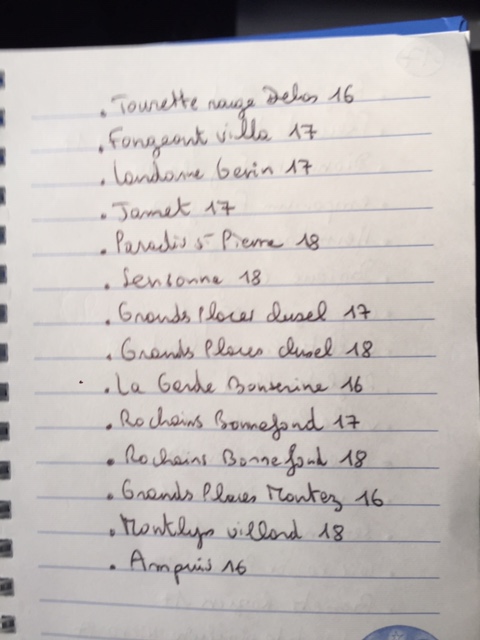 . Tourette rouge Delas 16
. Fongeant villa 17
. Landonne Gerin 17
. Jamet 17
. Paradis St Pierre 18
. Sensonne 18
. Grands Places clusel 17
. Grands Places clusel 18
. La Garde Bonserine 16
. Rochains Bonnefond 17
. Rochains Bonnefond 18
. Grands Places Montez 16
. Montlys villard 18
. Ampuis 16